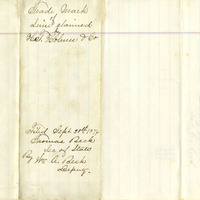 Trade Mark
claimed
Holmes & Co
Filed Sept 30th 187
Thomas Beck
Sec of State
By Wm. A. Beck
Deputy